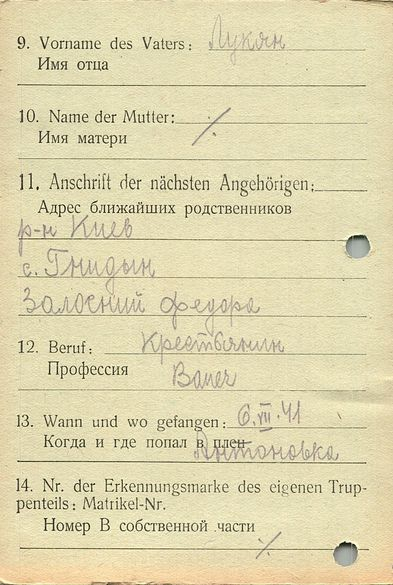 9. Vorname des Vaters: Лукян
Имя отца
10. Name der Mutter: ⁒
Имя матери
11. Anschrift der nächsten Angehörigen:
Адрес ближайших родственников
р-н Киев
с. Гнидын
Залосний Федора
12. Beruf: Крестьянин
Профессия Bauer
13. Wann und wo gefangen: 6.VII.41
Когда и где попал в плен Антоновка
14. Nr. der Erkennungsmarke des eigenen Trup-
penteils: Matrikel-Nr.
Номер В собственной части
⁒